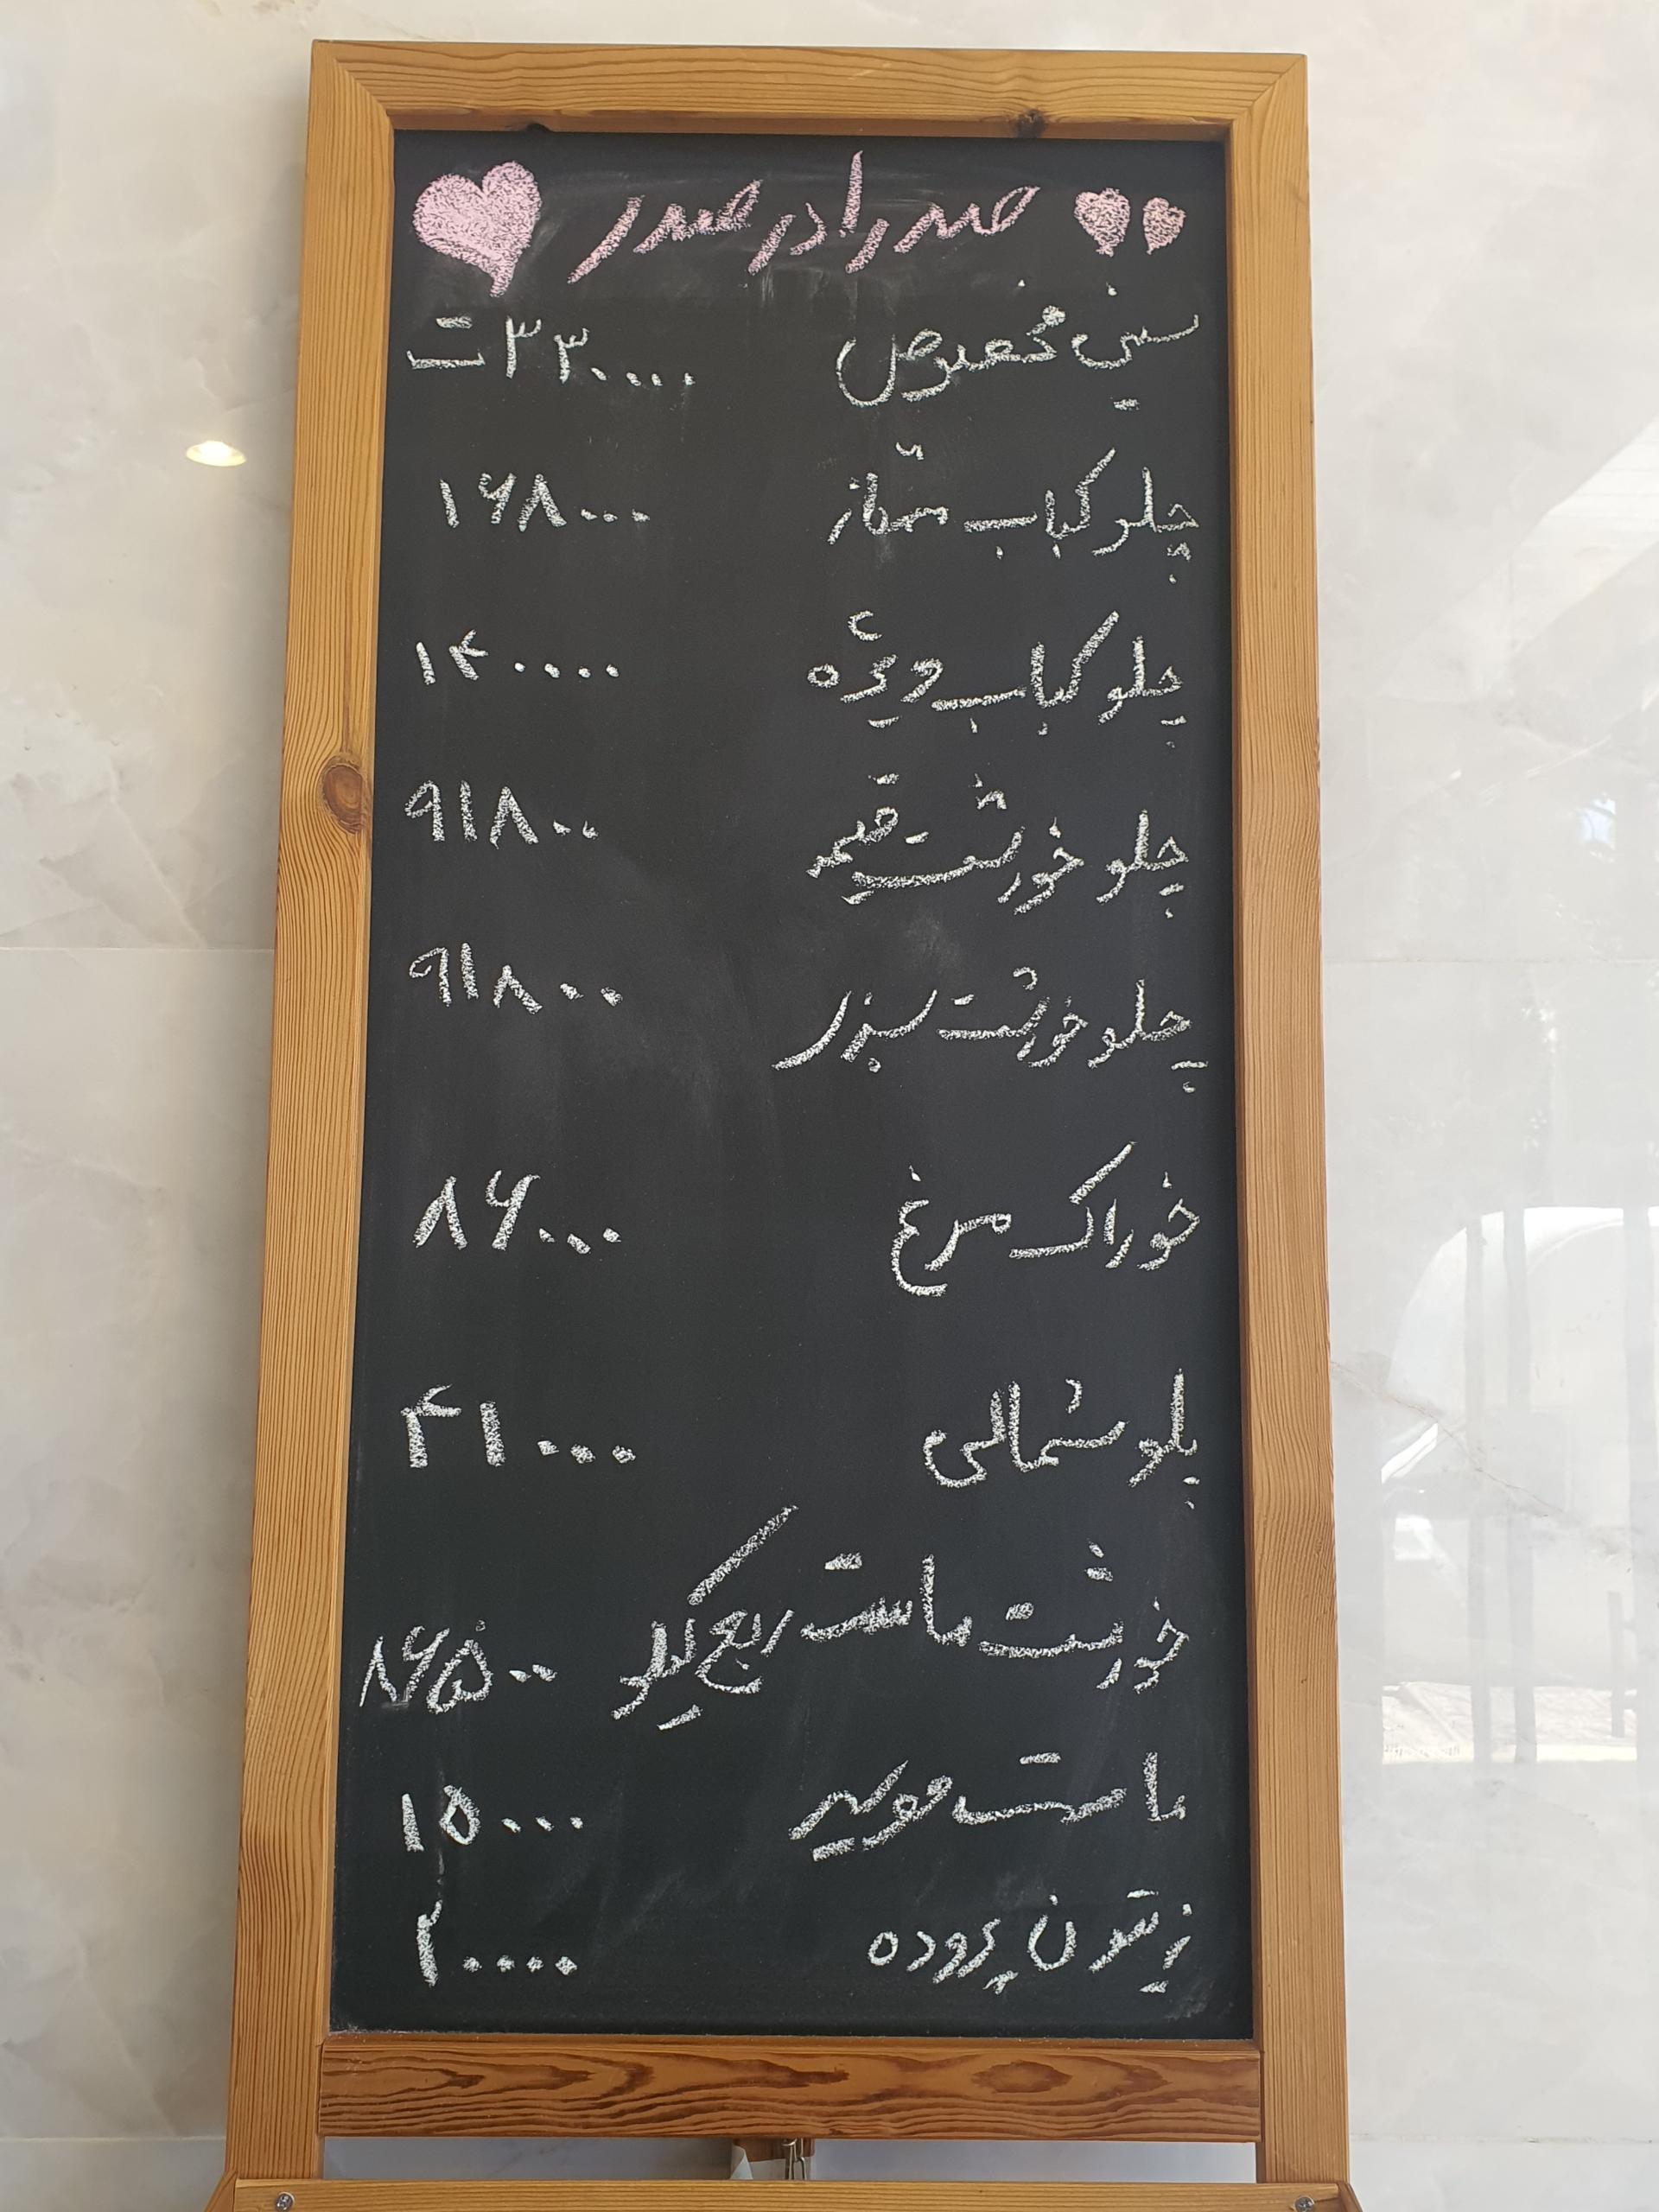 صدرا در صدر
سینی مخصوص ۳۳۰۰۰۰ ت
چلو کباب ممتاز ۱۶۸۰۰۰
چلو کباب ویژه ۱۴۰۰۰۰
چلو خورشت قیمه ۹۱۸۰۰
چلو خورشت سبزی ۹۱۸۰۰
خوراک مرغ ۸۶۰۰۰
پلو شمالی ۴۱۰۰۰
خورشت ماست ربع کیلو ۸۶۵۰۰
ماست موسیر ۱۵۰۰۰
زیتون پروده ۲۰۰۰۰